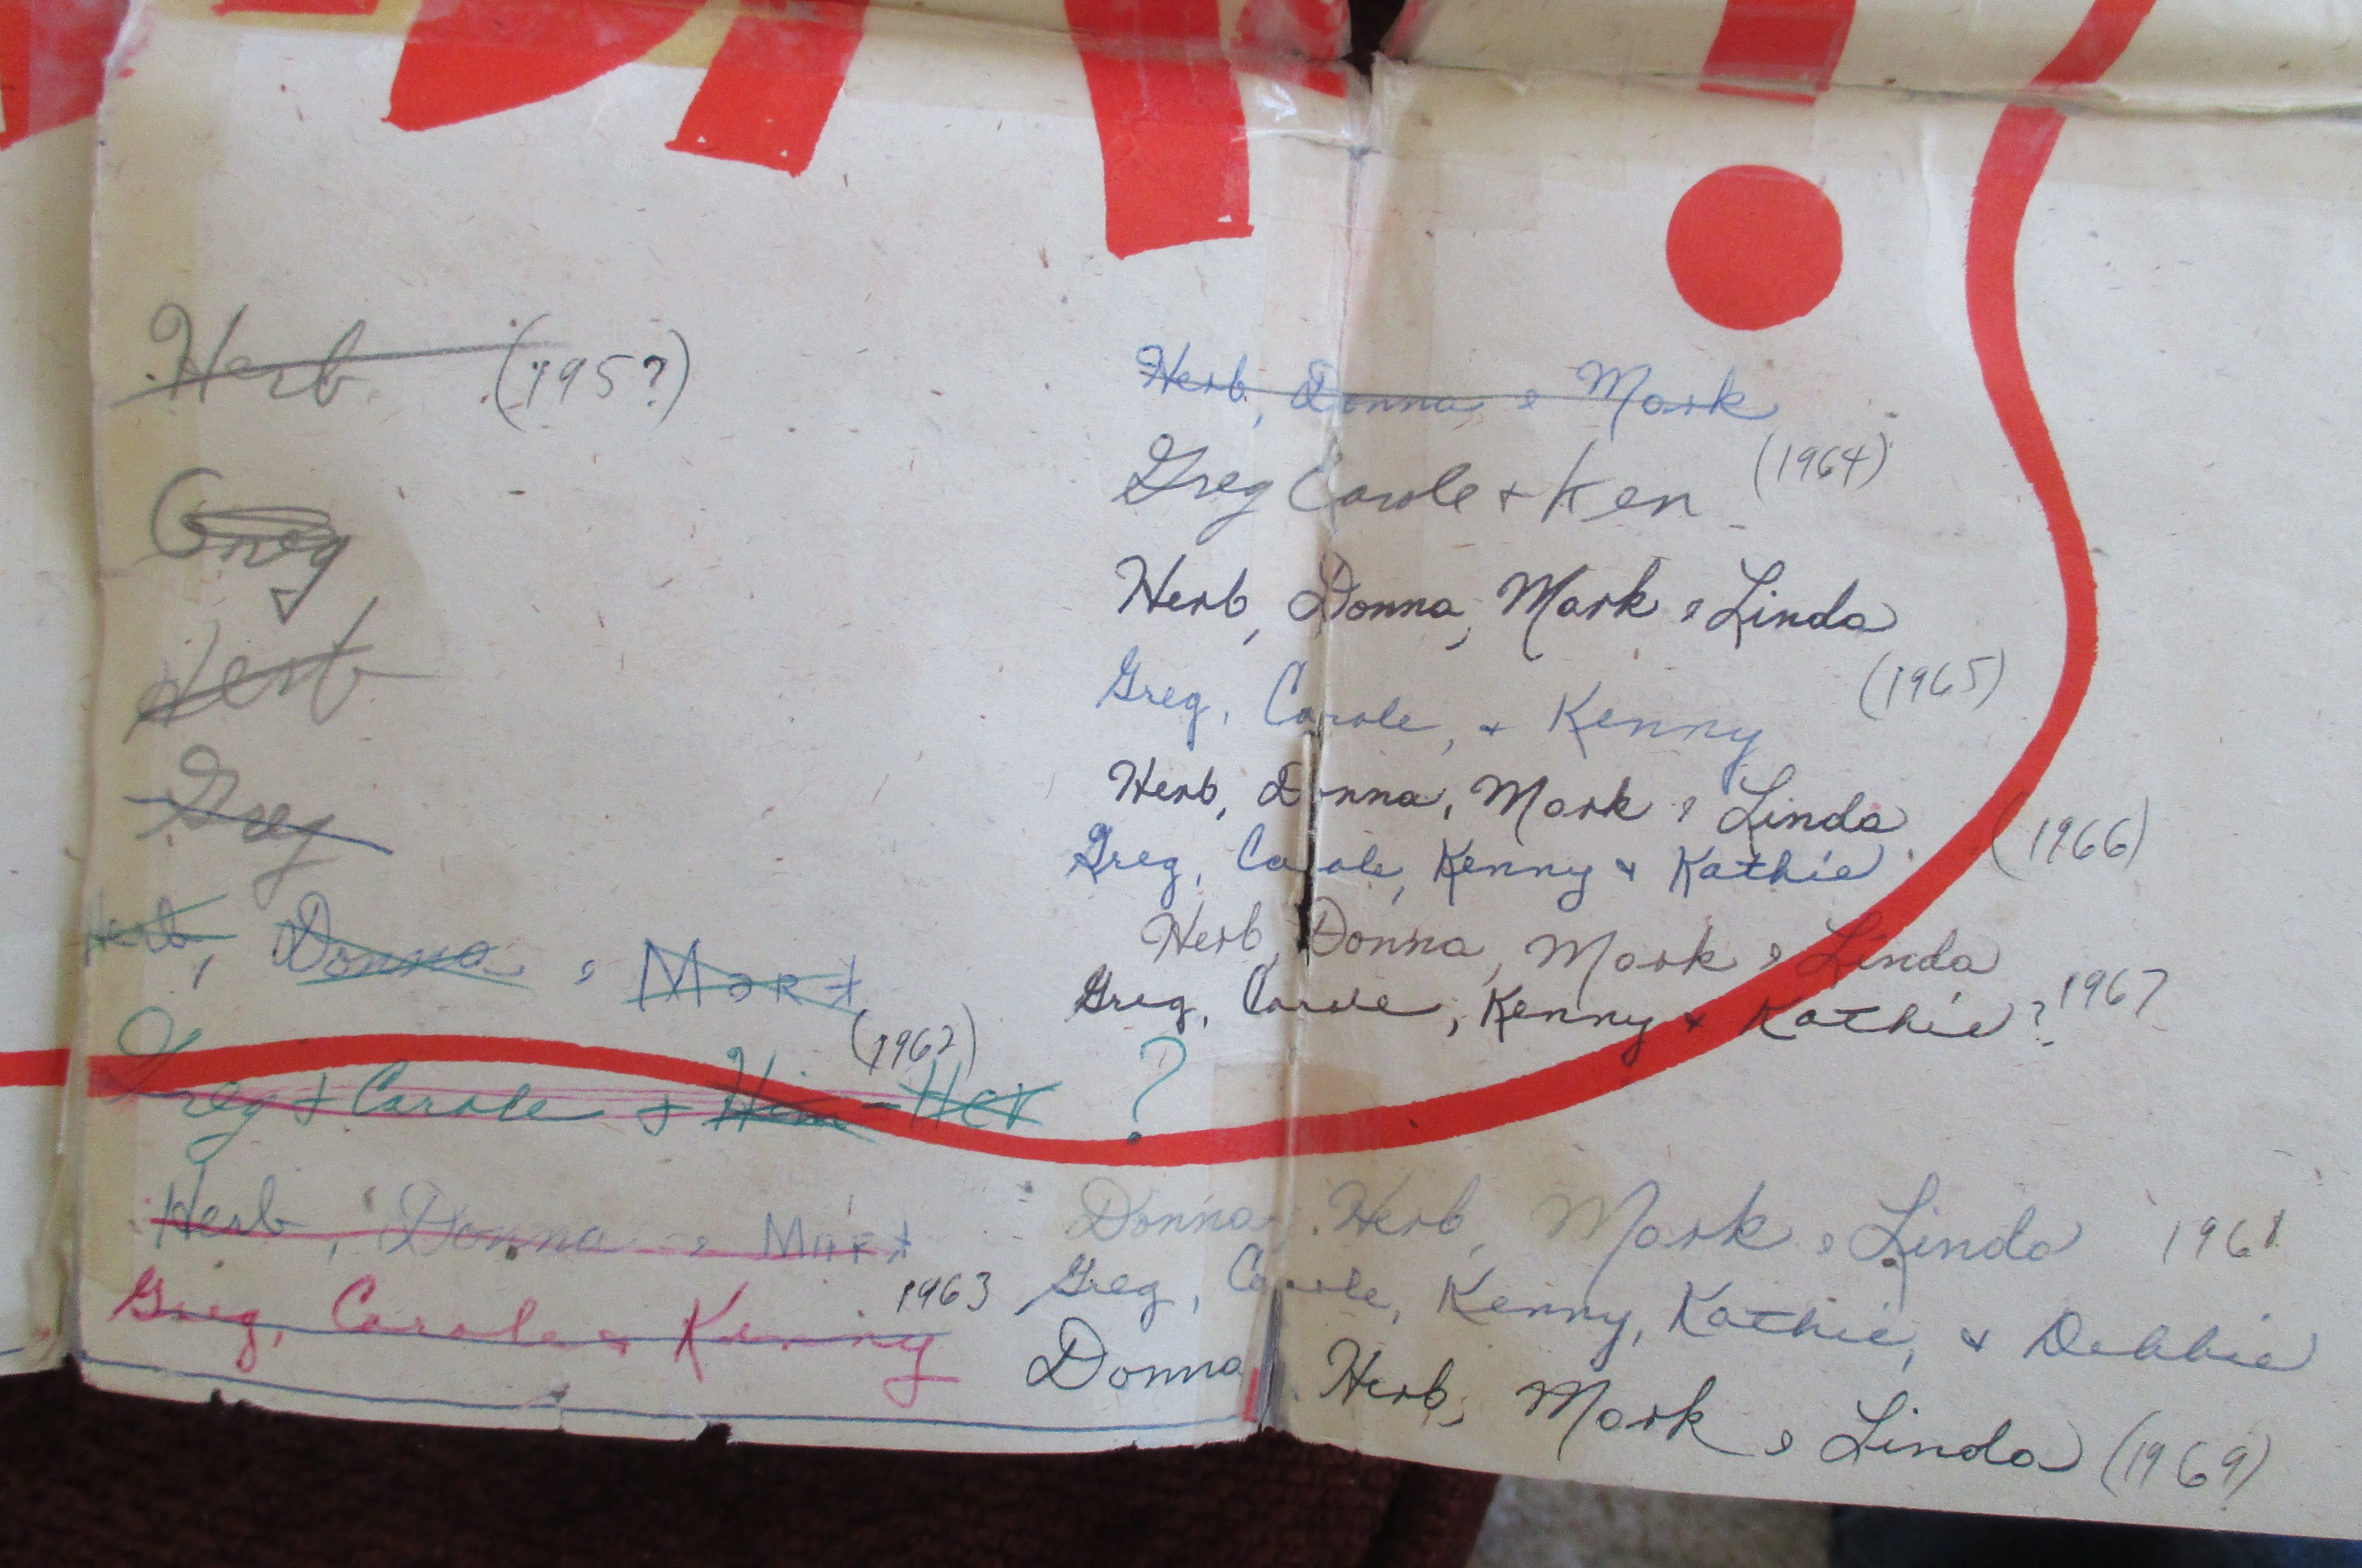 Herb (195?)
Greg
Herb
Greg
Herb, Donna & Mark
(1962)
Greg + Carole + Him-Her ?
Herb, Donna & Mark
Greg, Carole & Kenny 1963
Herb, Donna & Mark
Greg Carole + Ken (1964)
Herb, Donna, Mark & Linda
Greg, Carole, + Kenny (1965)
Herb, Donna, Mark & Linda
Greg, Carole, Kenny + Kathie (1966)
Herb, Donna, Mark & Linda
Greg, Carole, Kenny + Kathie? 1967
Donna, Herb, Mark & Linda 1968
Greg, Carole, Kenny, Kathie, + Debbie
Donna, Herb, Mark & Linda (1969)